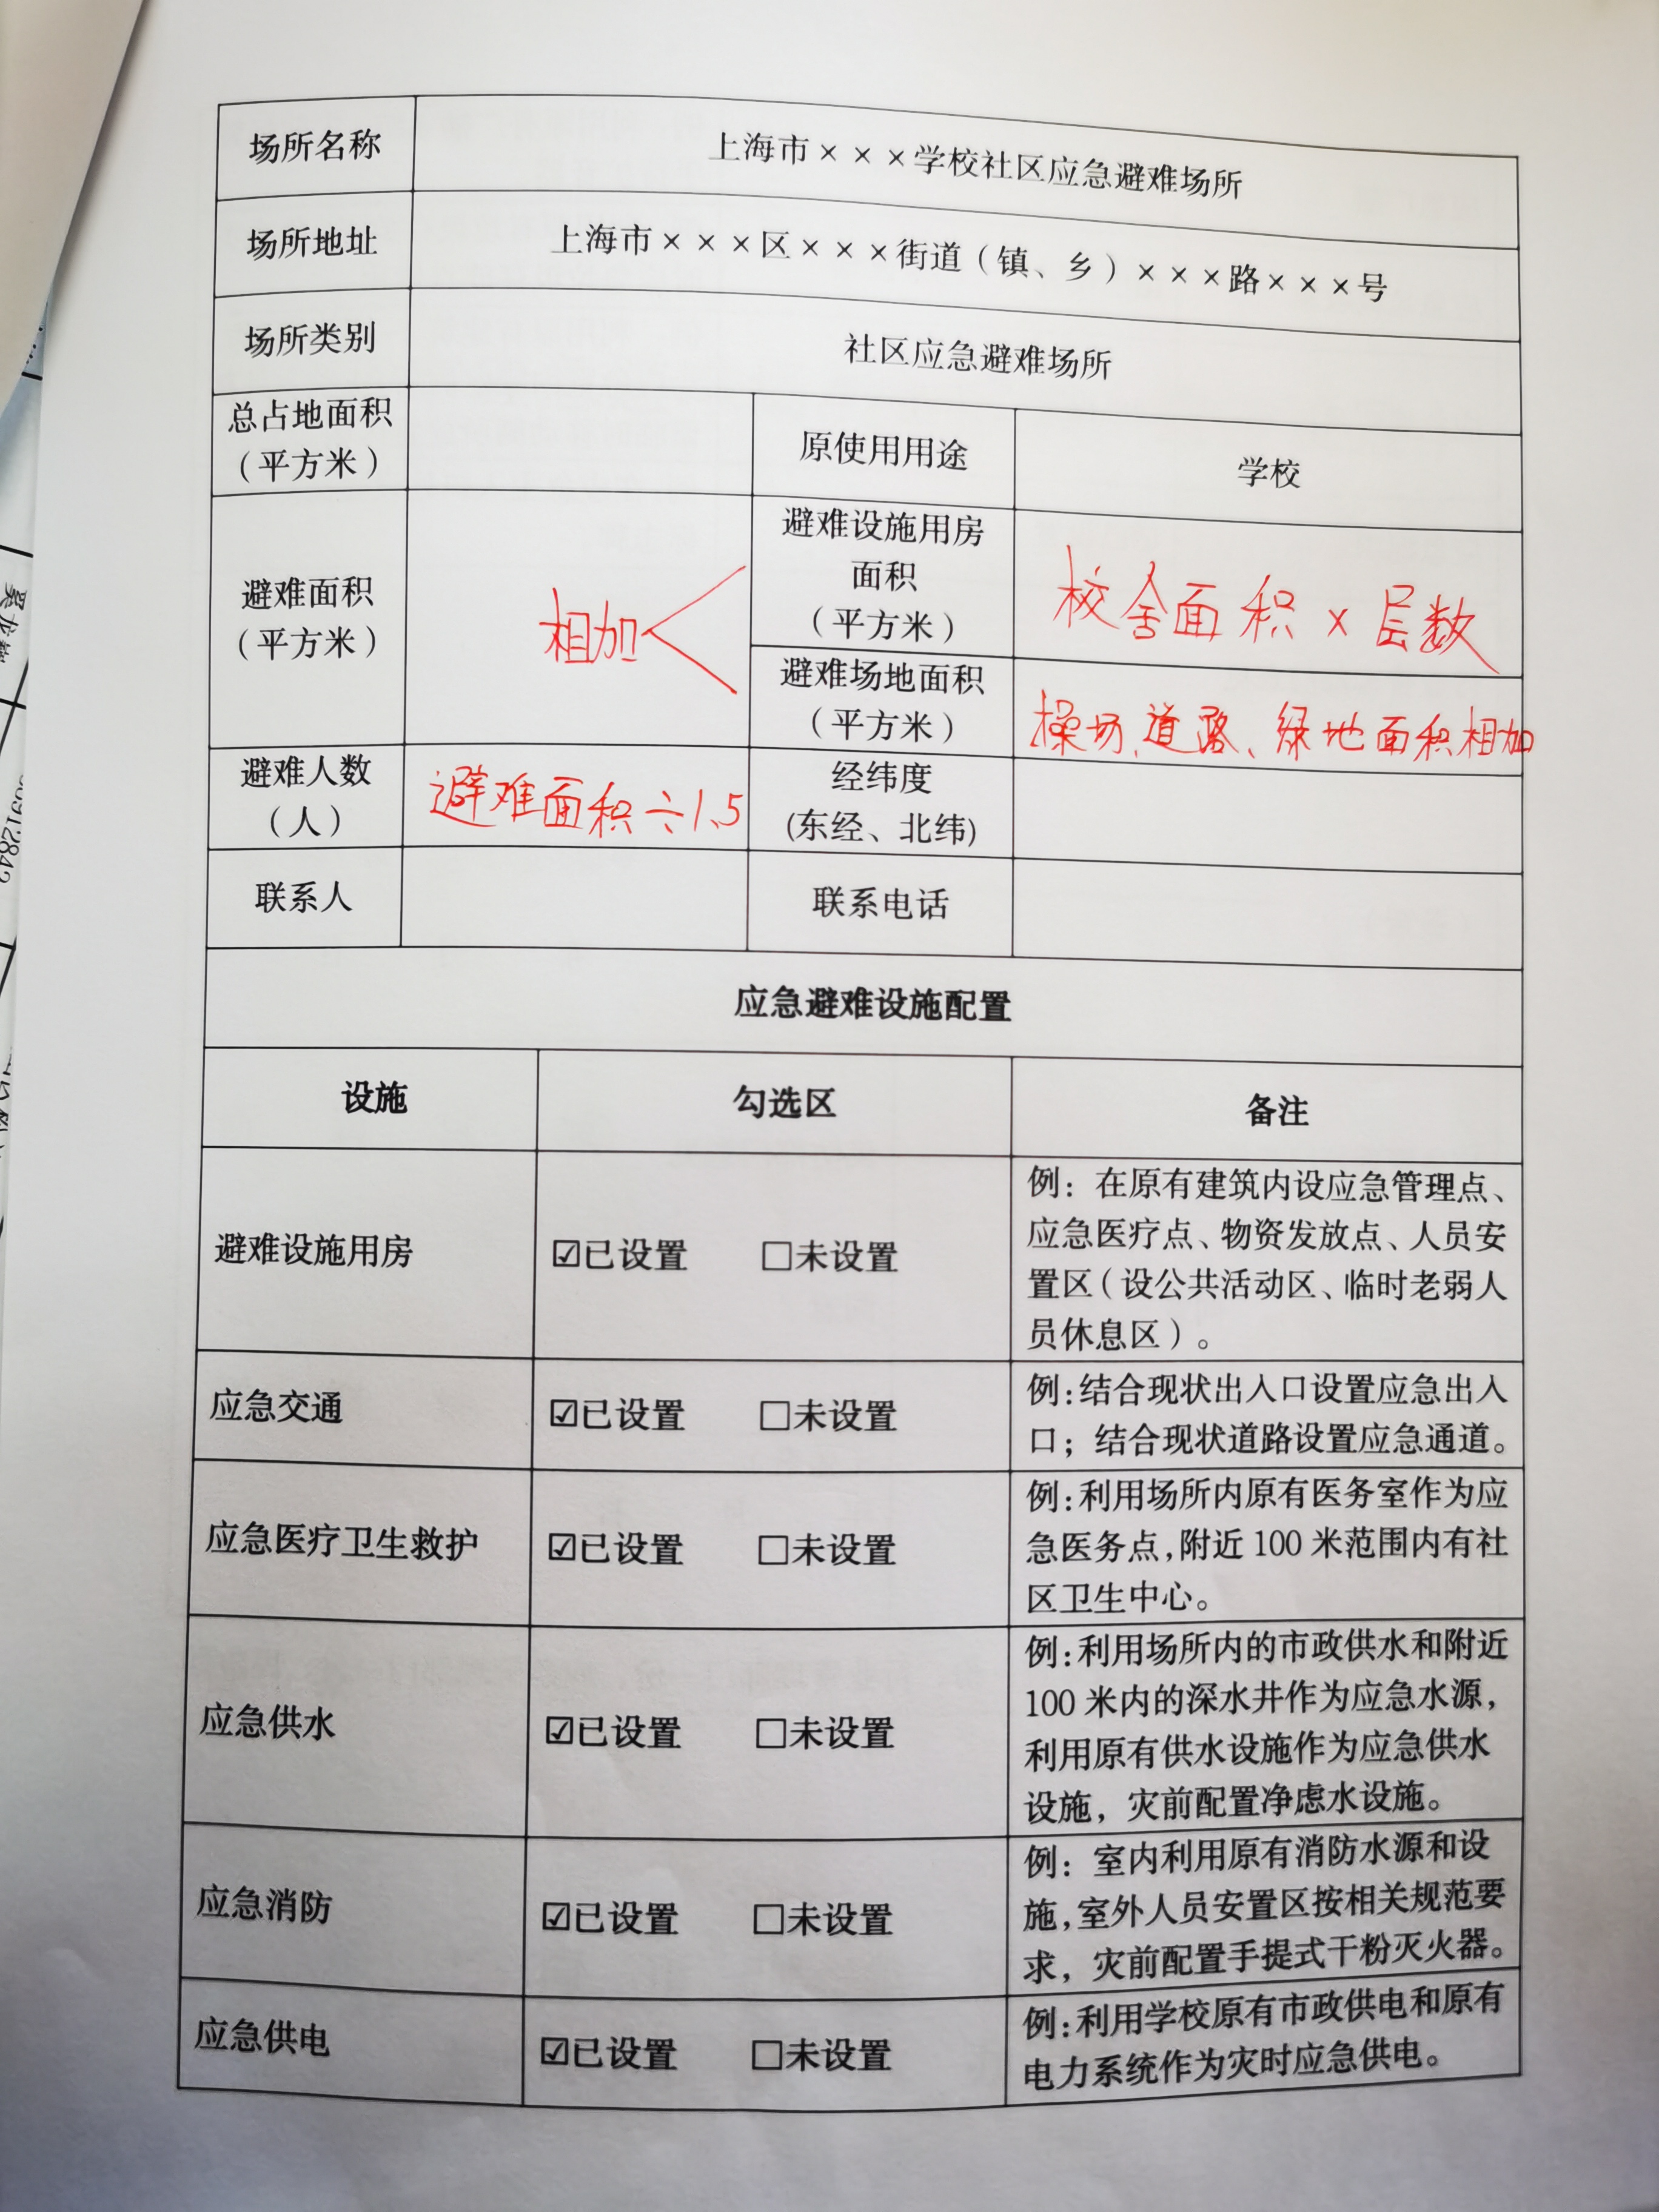 场所名称 上海市×××学校社区应急避难场所
场所地址 上海市×××区×××街道（镇、乡）×××路×××号
场所类别 社区应急避难场所
总占地面积
（平方米）
原使用用途
学校
避难面积
（平方米）
相加
避难设施用房
面积
（平方米）
校舍面积×层数
避难场地面积
（平方米）
操场、道路、绿地面积相加
避难人数
（人）
避难面积÷1.5
经纬度
(东经、北纬)
联系人
联系电话
应急避难设施配置
设施 勾选区 备注
避难设施用房
☑已设置 □未设置
例：在原有建筑内设应急管理点、
应急医疗点、物资发放点、人员安
置区（设公共活动区、临时老弱人
员休息区）。
应急交通
☑已设置 □未设置
例：结合现状出入口设置应急出入
口；结合现状道路设置应急通道。
应急医疗卫生救护
☑已设置 □未设置
例：利用场所内原有医务室作为应
急医务点，附近100米范围内有社
区卫生中心。
应急供水
☑已设置 □未设置
例：利用场所内的市政供水和附近
100米内的深水井作为应急水源，
利用原有供水设施作为应急供水
设施，灾前配置净虑水设施。
应急消防
☑已设置 □未设置
例：室内利用原有消防水源和设
施，室外人员安置区按相关规范要
求，灾前配置手提式干粉灭火器。
应急供电
☑已设置 □未设置
例：利用学校原有市政供电和原有
电力系统作为灾时应急供电。